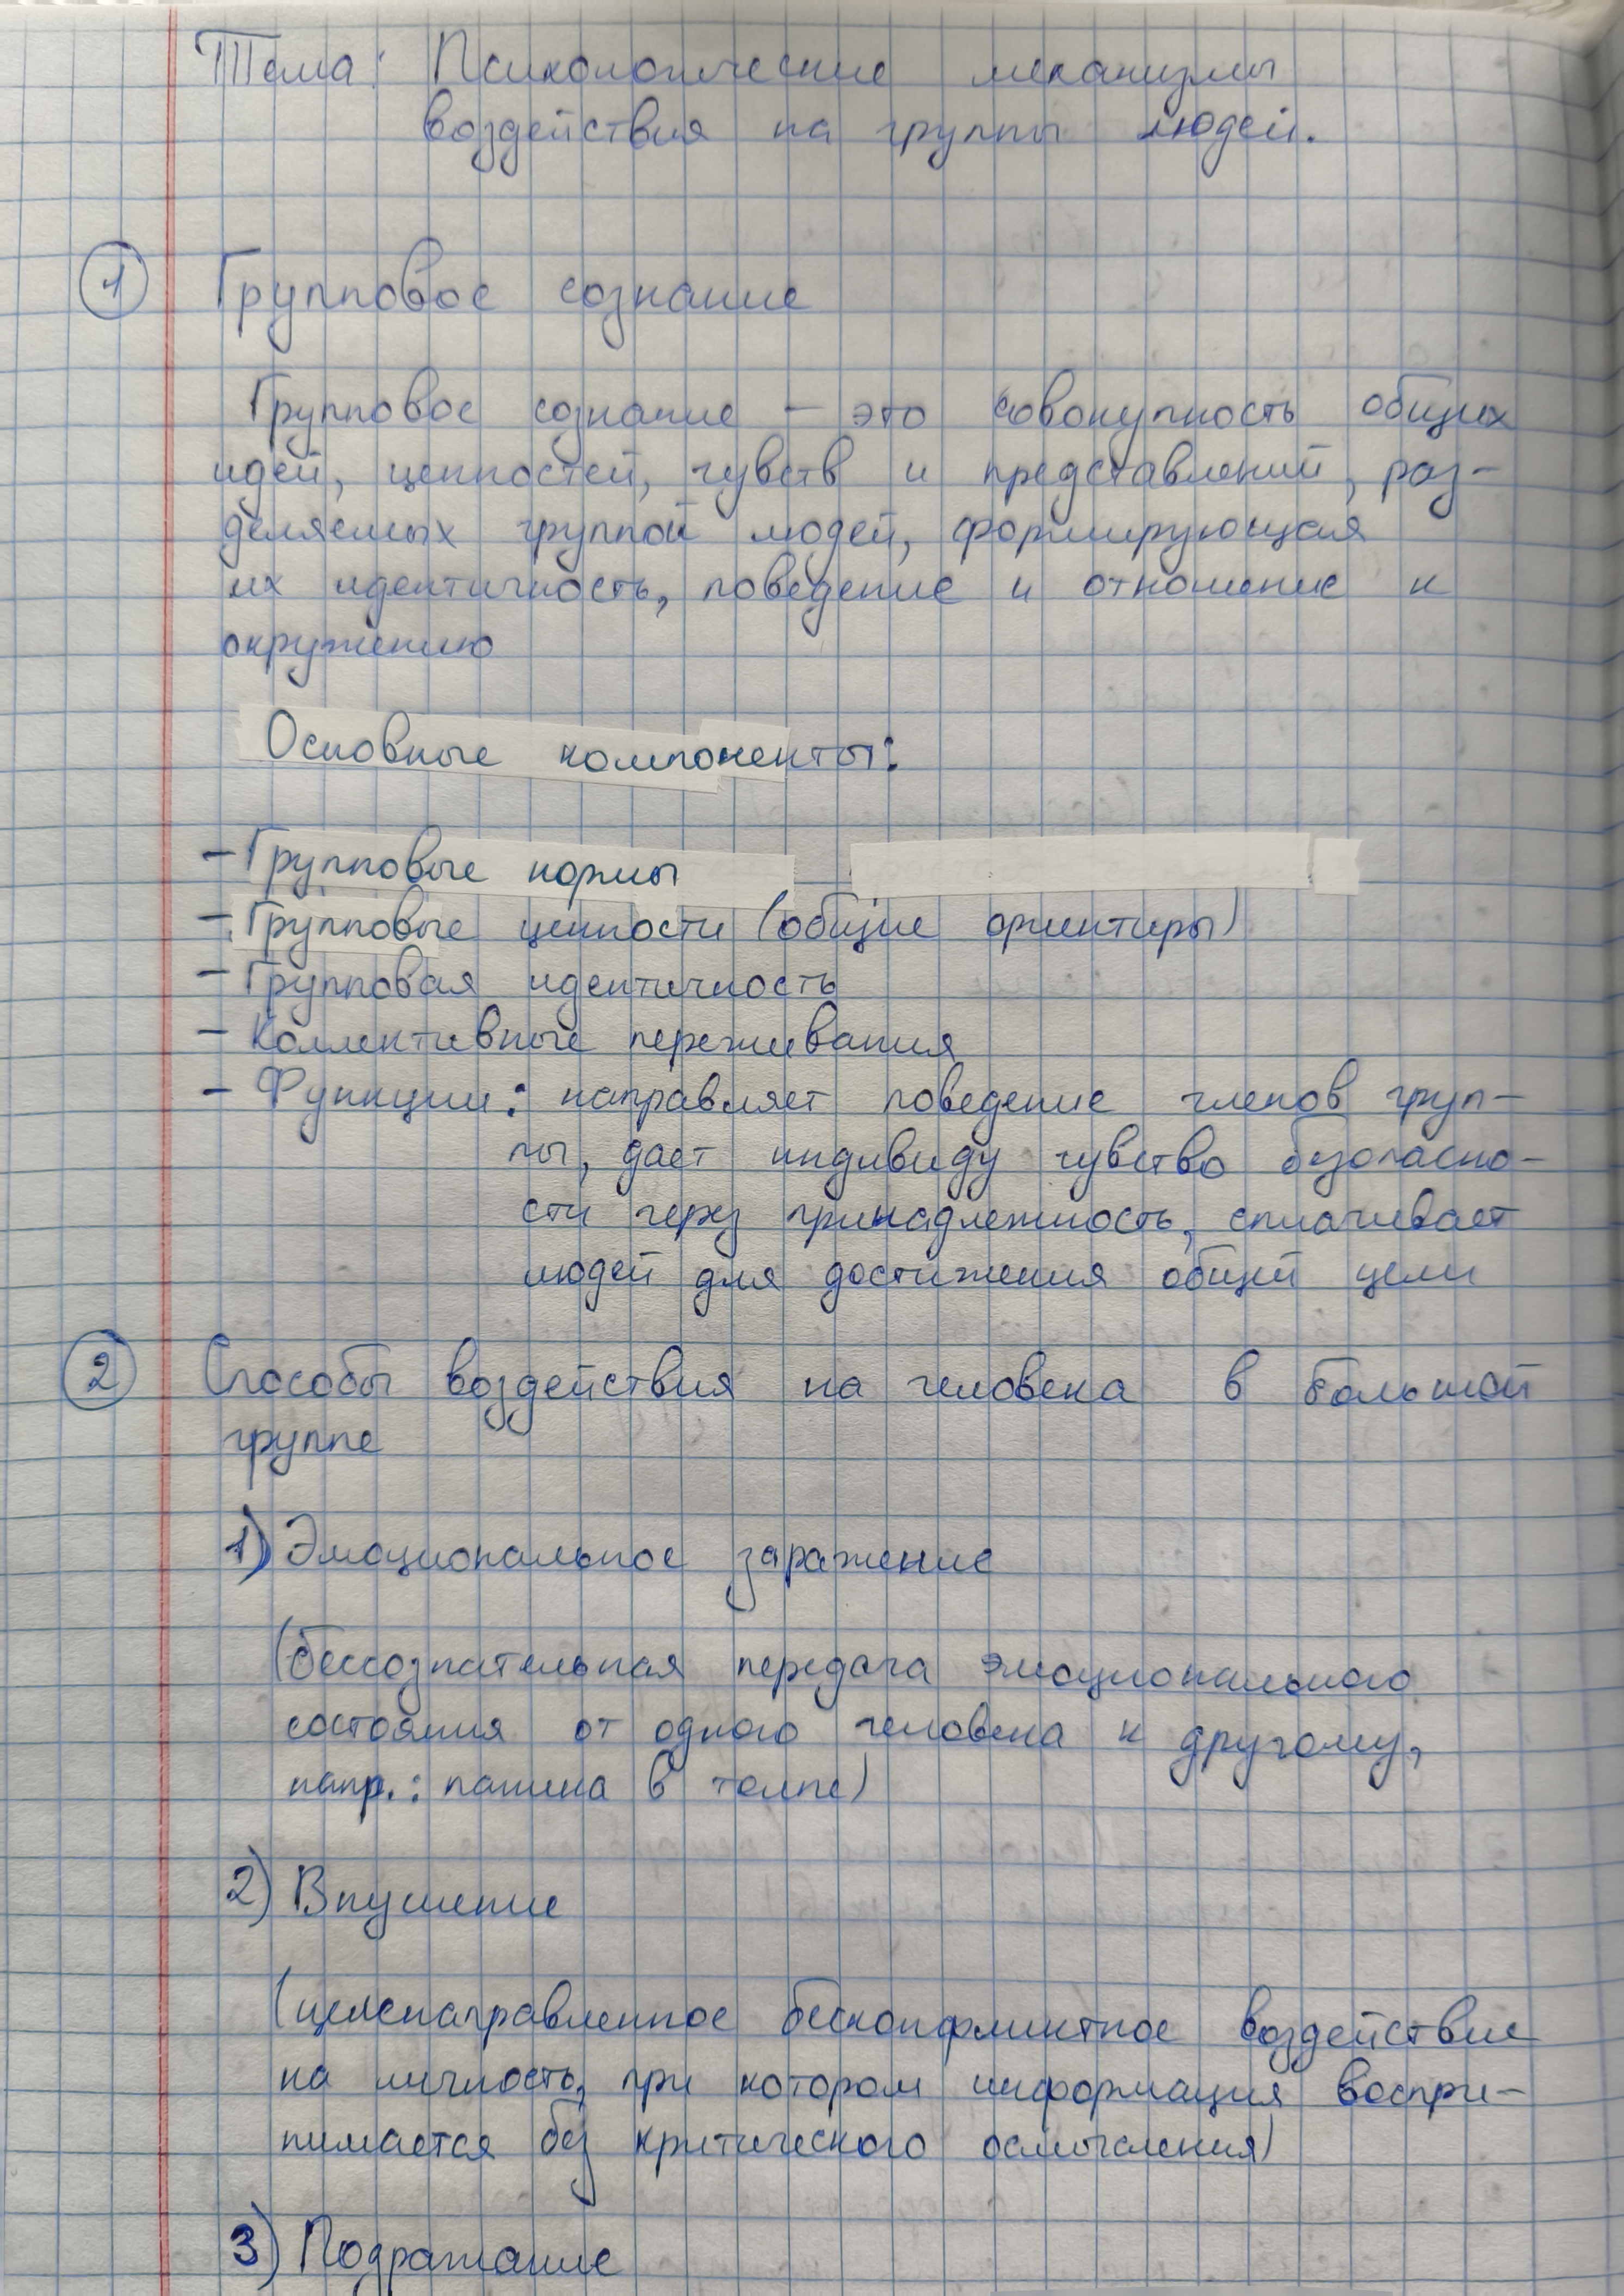 Тема: Психологические механизмы
воздействия на группы людей.
1 Групповое сознание
Групповое сознание – это совокупность общих
идей, ценностей, чувств и представлений, раз-
деляемых группой людей, формирующая
их идентичность, поведение и отношение к
окружению
Основные компоненты:
- Групповые нормы
- Групповые ценности (общие ориентиры)
- Групповая идентичность
- Коллективные переживания
- Функции: направляет поведение членов груп-
пы, дает индивиду чувство безопасно-
сти через принадлежность, сплачивает
людей для достижения общей цели
2 Способы воздействия на человека в большой
группе
1) Эмоциональное заражение
(бессознательная передача эмоционального
состояния от одного человека к другому,
напр.: паника в толпе)
2) Внушение
(целенаправленное бесконфликтное воздействие
на личность, при котором информация воспри-
нимается без критического осмысления)
3) Подражание